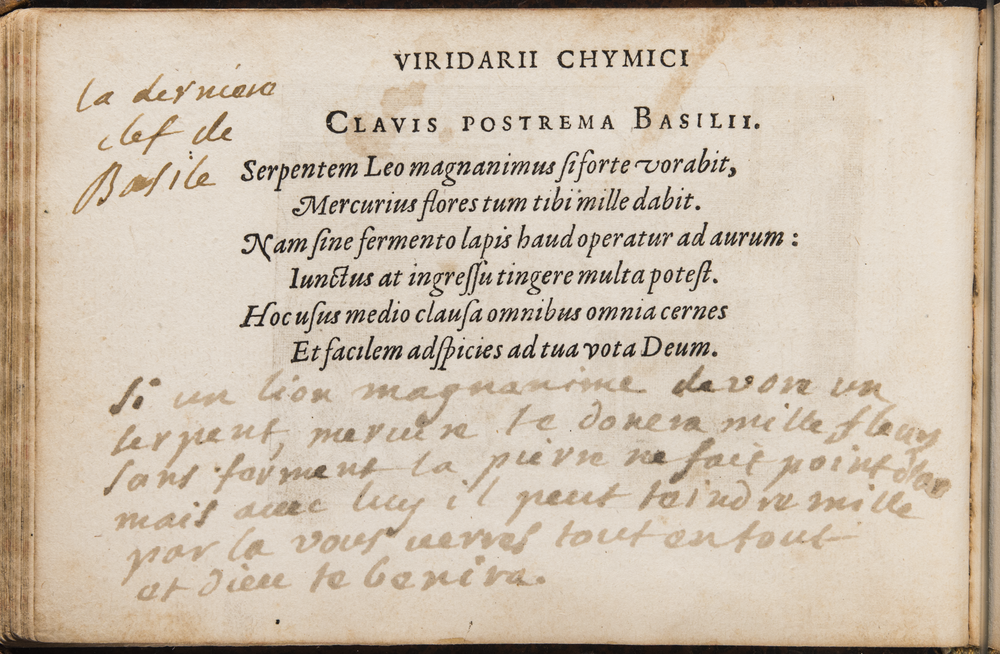 VIRIDARII CHYMICI
la derniere
clef de
Basile
CLAVIS POSTREMA BASILII.
Serpentem Leo magnanimus ſiforte vorabit,
Mercurius flores tum tibi mille dabit.
Nam ſine fermento lapis haud operatur ad aurum :
Iunctus at ingreſſu tingere multa poteſt.
Hoc uſus medio clauſa omnibus omnia cernes
Et facilem adſpicies ad tua vota Deum.
Si un lion magnanime devore un
serpent, mercure te donera mille fleurs
sans ferment la pierre ne fait point d'or
mais avec luy il peut teindre mille
par la vous verres tout en tout
et dieu te benira.